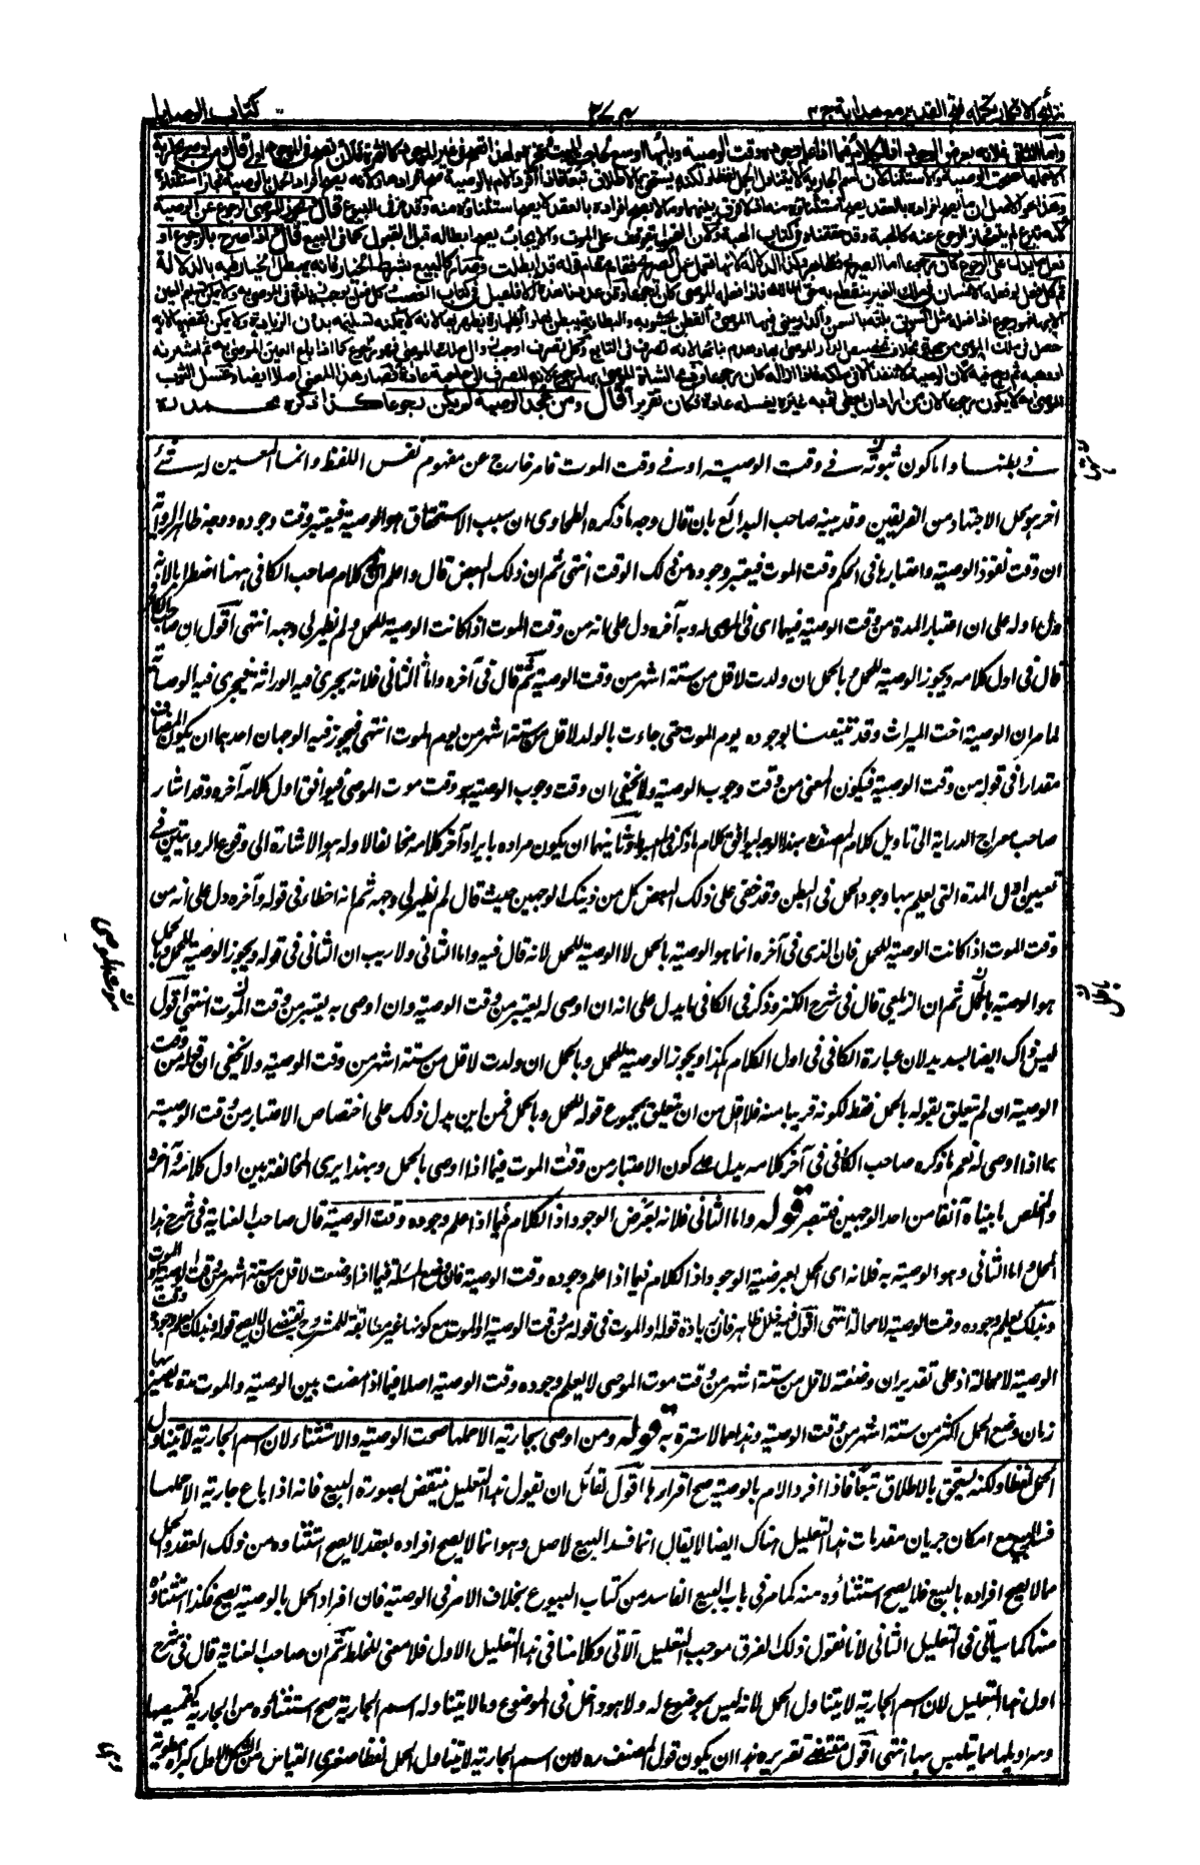 نتائج الافكار تكملة فتح القدير مع هداية ج ٤
كتاب الوصايا
واما الثانى فلانه بعرض الوجود اذ الكلام فيما اذا علم وجوده وقت الوصية
الا حملها صحت الوصية والاستثناء لان اسم الجارية لا يتناول الحمل لفظا ولكنه يستحق بالاطلاق تبعا فاذا افرد الام بالوصية صح افرادها ولانه يصح افراد الحمل بالوصية فجاز استثناؤه
وهذا هو الاصل ان ما يصح افراده بالعقد يصح استثناؤه منه اذ لا فرق بينهما وما لا يصح افراده بالعقد لا يصح استثناؤه منه وقد مر فى البيوع قال ويجوز للموصى الرجوع عن الوصية
لانه تبرع لم يتم فجاز الرجوع عنه كالهبة وقد حققناه فى كتاب الهبة ولان القبول يتوقف على الموت والايجاب يصح ابطاله قبل القبول كما فى البيع قال واذا صرح بالرجوع او
فعل ما يدل على الرجوع كان رجوعا اما الصريح فظاهر وكذا الدلالة لانها تعمل عمل الصريح فقام مقام قوله قد ابطلت وصار كالبيع بشرط الخيار فانه يبطل الخيار فيه بالدلالة
ثم كل فعل لو فعله الانسان فى ملك الغير ينقطع به حق المالك فاذا فعله الموصى كان رجوعا وقد عددنا هذه الافاعيل فى كتاب الغصب وكل فعل يوجب زيادة فى الموصى به ولا يمكن تسليم العين
الا بها فهو رجوع اذا فعله مثل السويق يلته بالسمن والدار يبنى فيها الموصى والقطن يحشو به والبطانة يبطن بها والظهارة يظهر بها لانه لا يمكنه تسليمه بدون الزيادة ولا يمكن نقضها لانه
حصل فى ملك الموصى من جهته بخلاف تجصيص الدار الموصى بها وهدم بنائها لانه تصرف فى التابع وكل تصرف اوجب زوال ملك الموصى فهو رجوع كما اذا باع العين الموصى به ثم اشتراه
او وهبه ثم رجع فيه لان الوصية لا تنفذ الا فى ملكه فاذا ازاله كان رجوعا وذبح الشاة الموصى بها رجوع لانه للصرف الى حاجته عادة فصار هذا المعنى اصلا ايضا وغسل الثوب
الموصى به لا يكون رجوعا لان من اراد ان يعطى ثوبه غيره يغسله عادة فكان تقريرا قال ومن جحد الوصية لم يكن رجوعا هكذا ذكره محمد ره
فى بطنها واما كون ثبوته فى وقت الوصية او فى وقت الموت فامر خارج عن مفهوم نفس اللفظ وانما المعين له شئ
اخر هو محل الاجتهاد من الفريقين وقد بينه صاحب البدائع بان قال وجه ما ذكره الطحاوى ان سبب الاستحقاق هو الوصية فيعتبر وقت وجوده ووجه ظاهر الرواية
ان وقت نفوذ الوصية واعتبارها فى الحكم وقت الموت فيعتبر وجوده من ذلك الوقت انتهى ثم ان ذلك البعض قال واعلم ان كلام صاحب الكافى ههنا اضطرابا لانه
دل اوله على ان اعتبار المدة من وقت الوصية فيهما اى فى الموصى له وبه آخره دل على انه من وقت الموت اذا كانت الوصية للحمل ولم يظهر لى وجهه انتهى اقول ان صاحب الكافى
قال فى اول كلامه ويجوز الوصية للحمل وبالحمل ان ولدت لاقل من ستة اشهر من وقت الوصية ثم قال فى آخره واما الثانى فلانه يجرى فيه الوراثة فيجرى فيه الوصاية
لما مر ان الوصية اخت الميراث وقد تيقنا بوجوده يوم الموت حتى جاءت بالولد لاقل من ستة اشهر من يوم الموت انتهى فيجوز فيه الوجهان احدهما ان يكون المضاف
مقدرا فى قوله من وقت الوصية فيكون المعنى من وقت وجوب الوصية ولا يخفى ان وقت وجوب الوصية هو وقت موت الموصى فيوافق اول كلامه آخره وقد اشار
صاحب معراج الدراية الى تاويل كلام المصنف ره بهذا الوجه ليوافق كلام ما ذكر فى المبسوط وثانيهما ان يكون مراده بايراد آخر كلامه مخالفا لاوله هو الاشارة الى وقوع الروايتين فى
تعيين اول المدة التى يعلم بها وجود الحمل فى البطن وقد خفى على ذلك البعض كل من ذينك الوجهين حيث قال لم يظهر لى وجهه ثم انه اخطاء فى قوله وآخره دل على انه من
وقت الموت اذا كانت الوصية للحمل فان الذى فى آخره انما هو الوصية بالحمل لا الوصية للحمل لانه قال فيه واما الثانى ولا ريب ان الثانى فى قوله ويجوز الوصية للحمل وبالحمل
هو الوصية بالحمل ثم ان الزيلعى قال فى شرح الكنز وذكر فى الكافى ما يدل على انه ان اوصى له يعتبر من وقت الوصية وان اوصى به يعتبر من وقت الموت انتهى اقول
ليس ذاك ايضا بسديد لان عبارة الكافى فى اول الكلام هكذا ويجوز الوصية للحمل وبالحمل ان ولدت لاقل من ستة اشهر من وقت الوصية ولا يخفى ان قوله من وقت
الوصية ان لم يتعلق بقوله بالحمل فقط لكونه قريبا منه فلا اقل من ان يتعلق بمجموع قوله للحمل وبالحمل فمن اين يدل ذلك على اختصاص الاعتبار من وقت الوصية
بما اذا اوصى له نعم ما ذكره صاحب الكافى فى آخر كلامه يدل على كون الاعتبار من وقت الموت فيما اذا اوصى بالحمل وبهذا يرى المخالفة بين اول كلامه وآخره
والمخلص ما بيناه آنفا من احد الوجهين فتبصر قوله واما الثانى فلانه بعرض الوجود اذ الكلام فيما اذا علم وجوده وقت الوصية قال صاحب العناية فى شرح هذا
المحل واما الثانى وهو الوصية به فلانه اى الحمل بعرضية الوجود اذ الكلام فيما اذا علم وجوده وقت الوصية فان وضع المسئلة فيما اذا وضعت لاقل من ستة اشهر من وقت الوصية او الموت
وبذلك يعلم وجوده وقت الوصية لا محالة انتهى اقول فيه خلل ظاهر فان زيادة قوله او الموت فى قوله من وقت الوصية او الموت مع كونها غير مطابقة للمشروح تقتضى ان لا يصح قوله وبذلك يعلم وجوده وقت
الوصية لا محالة اذ على تقدير ان وضعته لاقل من ستة اشهر من وقت موت الموصى لا يعلم وجوده وقت الوصية اصلا فيما اذا مضت بين الوصية والموت مدة يصير بها
زمان وضع الحمل اكثر من ستة اشهر من وقت الوصية وهذا مما لا سترة به قوله ومن اوصى بجارية الا حملها صحت الوصية والاستثناء لان اسم الجارية لا يتناول
الحمل لفظا ولكنه يستحق بالاطلاق تبعا فاذا افرد الام بالوصية صح افرادها اقول لقائل ان يقول هذا التعليل ينتقض بصورة البيع فانه اذا باع جارية الا حملها
فسد البيع مع امكان جريان مقدمات هذا التعليل هناك ايضا لا يقال انما فسد البيع لاصل وهو انما لا يصح افراده بعقد لا يصح استثناؤه من ذلك العقد والحمل
مما لا يصح افراده بالبيع فلا يصح استثناؤه منه كما مر فى باب البيع الفاسد من كتاب البيوع بخلاف الامر فى الوصية فان افراد الحمل بالوصية يصح فكذا استثناؤه
منها كما سيأتى فى التعليل الثانى لانا نقول ذلك الفرق موجب التعليل الآتى وكلامنا فى هذا التعليل الاول فلا معنى للخلط ثم ان صاحب العناية قال فى شرح
اول هذا التعليل لان اسم الجارية لا يتناول الحمل لانه ليس بموضوع له ولا هو داخل فى الموضوع وما لا يتناوله اسم الجارية صح استثناؤه من الجارية كقميصها
وسراويلها مما يتلبس بها انتهى اقول مقتضى تقريره هذا ان يكون قول المصنف ره لان اسم الجارية لا يتناول الحمل لفظا صغرى القياس من الشكل الاول كبراه مطوية